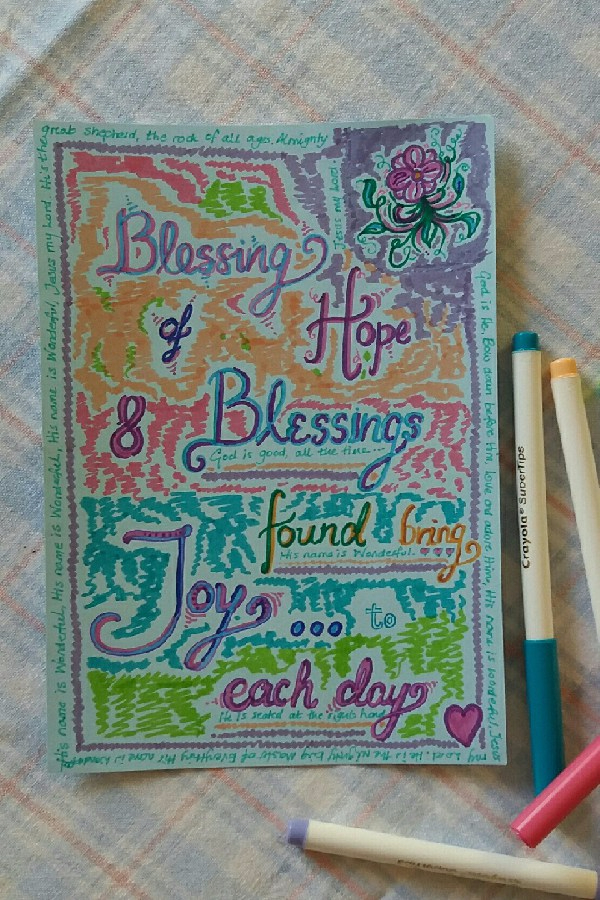 great shepherd, the rock of all ages. Almighty
Jesus my Lord.
Blessing
of Hope
& Blessings
God is good, all the time...
found bring
His name is Wonderful.
Joy ... to
each day
He is seated at the right hand
God is He. Bow down before Him, love and adore Him, His name is wonderful, Jesus
my Lord. He is the mighty king Master of Everything His name is Wonderful
His name is Wonderful, His name is Wonderful, His name is Wonderful, Jesus my Lord. He's the
Crayola® SuperTips